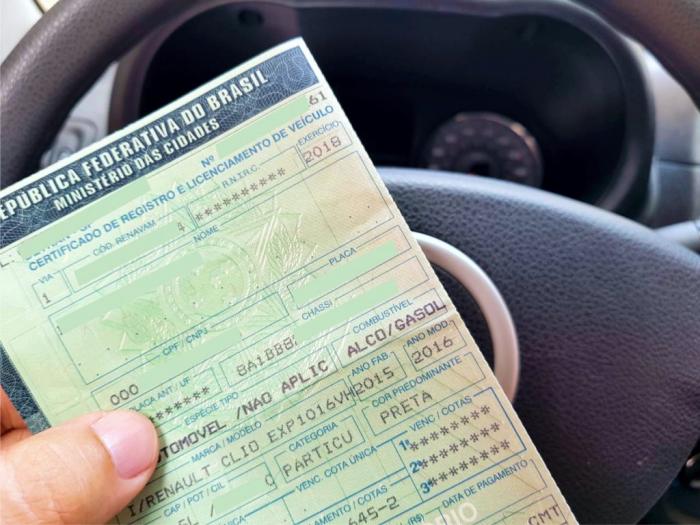 REPÚBLICA FEDERATIVA DO BRASIL
MINISTÉRIO DAS CIDADES
Nº 61
CERTIFICADO DE REGISTRO E LICENCIAMENTO DE VEÍCULO
VIA CÓD. RENAVAM R.N.T.R.C. EXERCÍCIO
1 4 ********** 2018
NOME
CPF / CNPJ PLACA
000
PLACA ANT / UF CHASSI
******* 8A1BB8
ESPÉCIE TIPO COMBUSTÍVEL
TOMOVEL /NAO APLIC ALCO/GASOL
MARCA / MODELO ANO FAB. ANO MOD.
I/RENAULT CLIO EXP1016VH 2015 2016
CAP / POT / CIL CATEGORIA COR PREDOMINANTE
PARTICU PRETA
COTA ÚNICA VENC. COTA ÚNICA VENC / COTAS
1ª *******
2ª *******
3ª *******
DATA DE PAGAMENTO